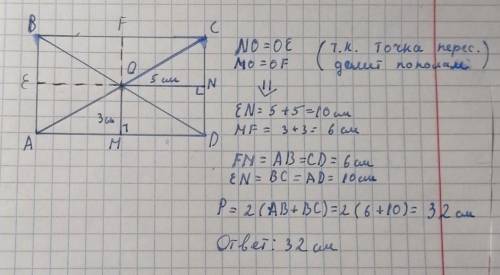 B F C
O
E 5 см N
3 см
A M D
NO = OE
MO = OF
(т.к. точка перес.
делит пополам)
⇓
EN = 5 + 5 = 10 см
MF = 3 + 3 = 6 см
FM = AB = CD = 6 см
EN = BC = AD = 10 см
P = 2 (AB + BC) = 2 (6 + 10) = 32 см
Ответ: 32 см